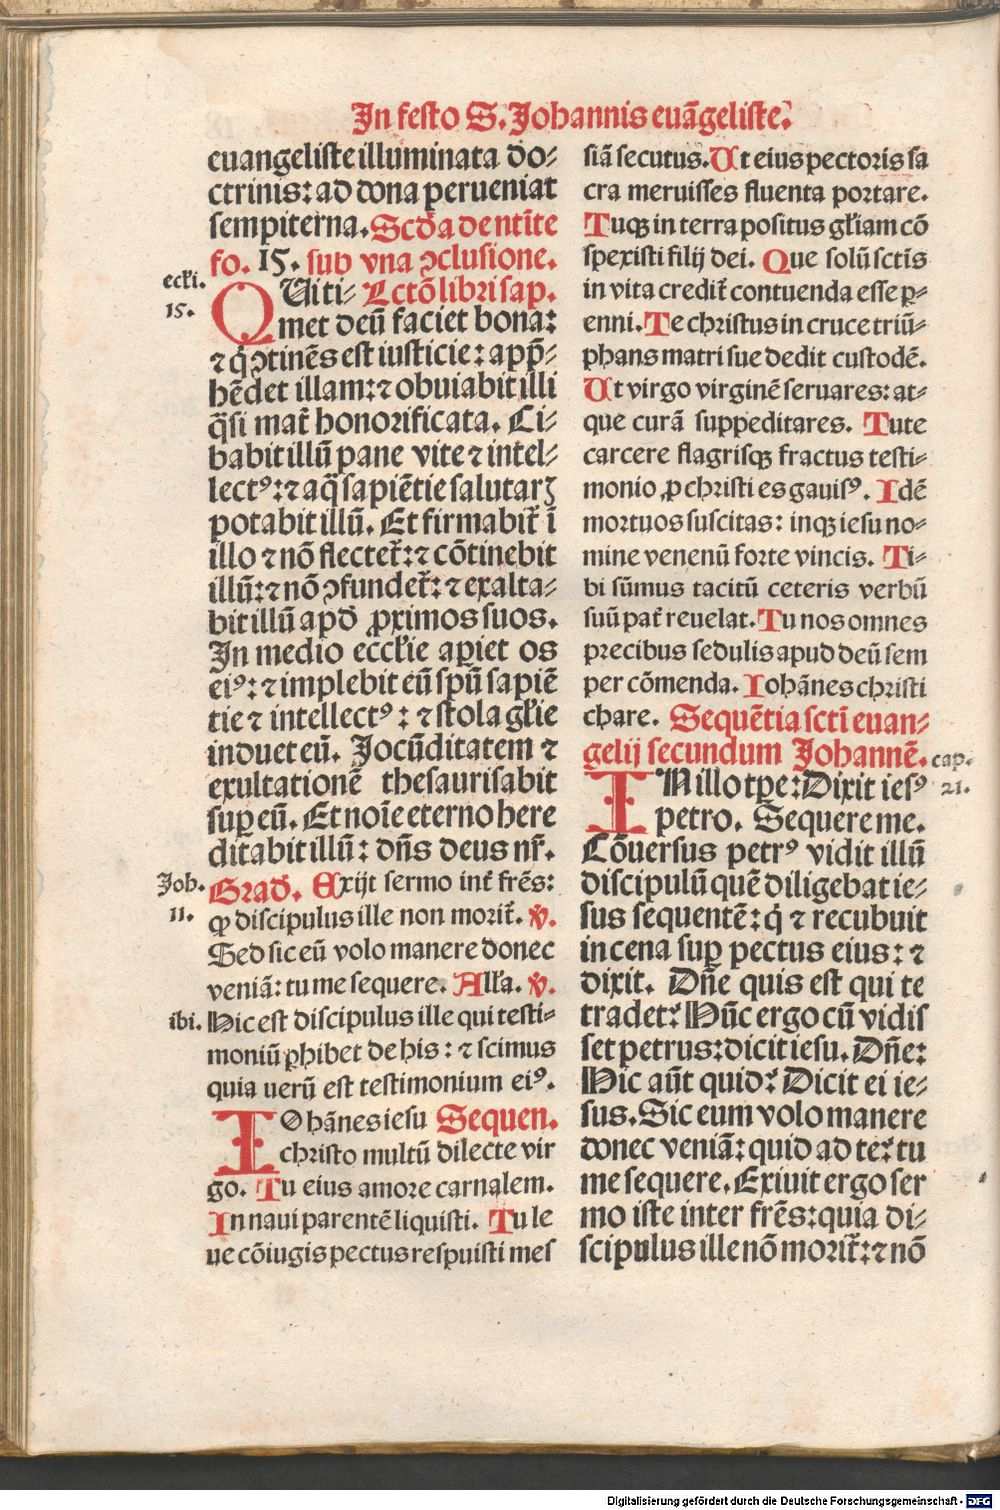 In festo S. Johannis euãgeliste.
euangeliste illuminata do-
ctrinis: ad dona perueniat
sempiterna. Scďa de ntĩte
fo. 15. sub vna ↄclusione.
eckĩ.
15.
QUi ti- Lctõ libri sap.
met deũ faciet bona:
⁊ q̇ ↄtinẽs est iusticie: app̃-
hẽdet illam: ⁊ obuiabit illi
q̃si mat̃ honorificata. Ci-
babit illũ pane vite ⁊ intel-
lectꝰ: ⁊ aq̃ sapiẽtie salutarꝫ
potabit illũ. Et firmabit̃ ĩ
illo ⁊ nõ flectet̃: ⁊ cõtinebit
illũ: ⁊ nõ ↄfundet̃: ⁊ exalta-
bit illũ apď ꝓximos suos.
In medio eccłie aꝑiet os
eiꝰ: ⁊ implebit eũ spũ sapiẽ
tie ⁊ intellectꝰ: ⁊ stola głie
induet eũ. Jocũditatem ⁊
exultationẽ thesaurisabit
suꝑ eũ. Et noĩe eterno here
ditabit illũ: dñs deus nr̃.
Joh.
11.
Grad. Exijt sermo int̃ frẽs:
ꝙ discipulus ille non morit̃. ℣.
Sed sic eũ volo manere donec
veniã: tu me sequere. Alła. ℣.
ibi. Hic est discipulus ille qui testi-
moniũ ꝑhibet de his: ⁊ scimus
quia uerũ est testimonium eiꝰ.
IOhãnes iesu Sequen.
christo multũ dilecte vir
go. Tu eius amore carnalem.
In naui parentẽ liquisti. Tu le
ue cõiugis pectus respuisti mes
siã secutus. Ut eius pectoris sa
cra meruisses fluenta portare.
Tuqꝫ in terra positus głiam cõ
spexisti filij dei. Que solũ sctĩs
in vita credit̃ contuenda esse ꝑ-
enni. Te christus in cruce triũ-
phans matri sue dedit custodẽ.
Ut virgo virginẽ seruares: at-
que curã suppeditares. Tute
carcere flagrisqꝫ fractus testi-
monio ꝓ christi es gauisꝰ. Idẽ
mortuos suscitas: inqꝫ iesu no-
mine venenũ forte vincis. Ti-
bi sũmus tacitũ ceteris verbũ
suũ pat̃ reuelat. Tu nos omnes
precibus sedulis apud deũ sem
per cõmenda. Iohãnes christi
chare. Sequẽtia sctĩ euan-
gelij secundum Johannẽ.
cap.
21.
IN illo tꝑe: Dixit iesꝰ
petro. Sequere me.
Cõuersus petrꝰ vidit illũ
discipulũ quẽ diligebat ie-
sus sequentẽ: q̇ ⁊ recubuit
in cena suꝑ pectus eius: ⁊
dixit. Dñe quis est qui te
tradet? Hũc ergo cũ vidis
set petrus: dicit iesu. Dñe:
Hic aũt quid? Dicit ei ie-
sus. Sic eum volo manere
donec veniã: quid ad te? tu
me sequere. Exiuit ergo ser
mo iste inter frẽs: quia di-
scipulus ille nõ morit̃: ⁊ nõ
Digitalisierung gefördert durch die Deutsche Forschungsgemeinschaft - DFG